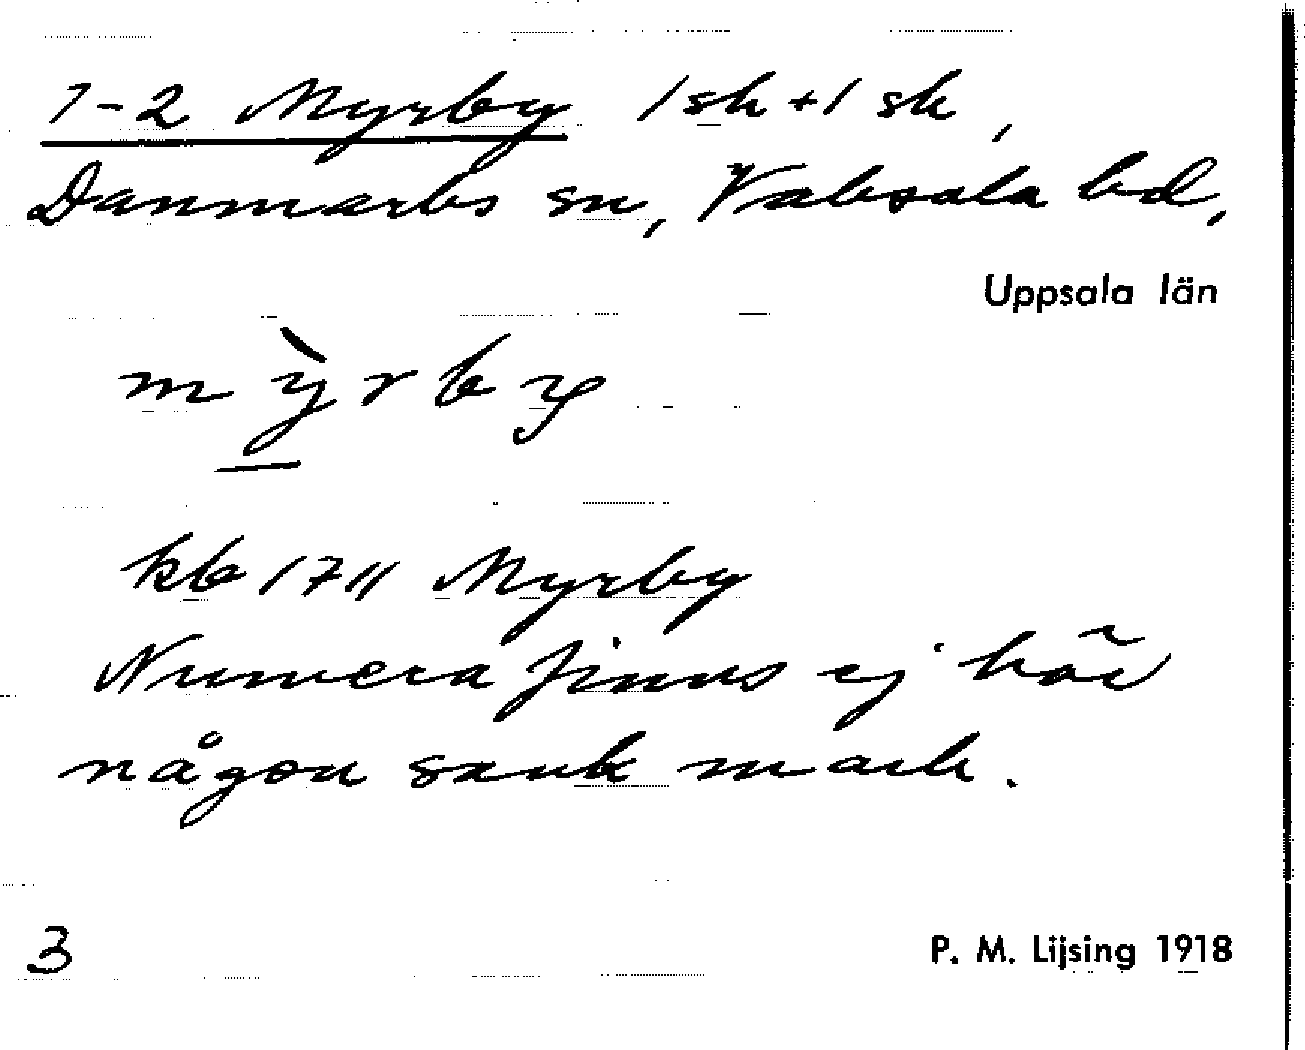 1-2 Myrby 1 sk + 1 sk,
Danmarks sn, Vaksala hd,
Uppsala län
mỳrby
kb 1711 Myrby
Numera finns ej här
någon sank mark.
3
P. M. Lijsing 1918